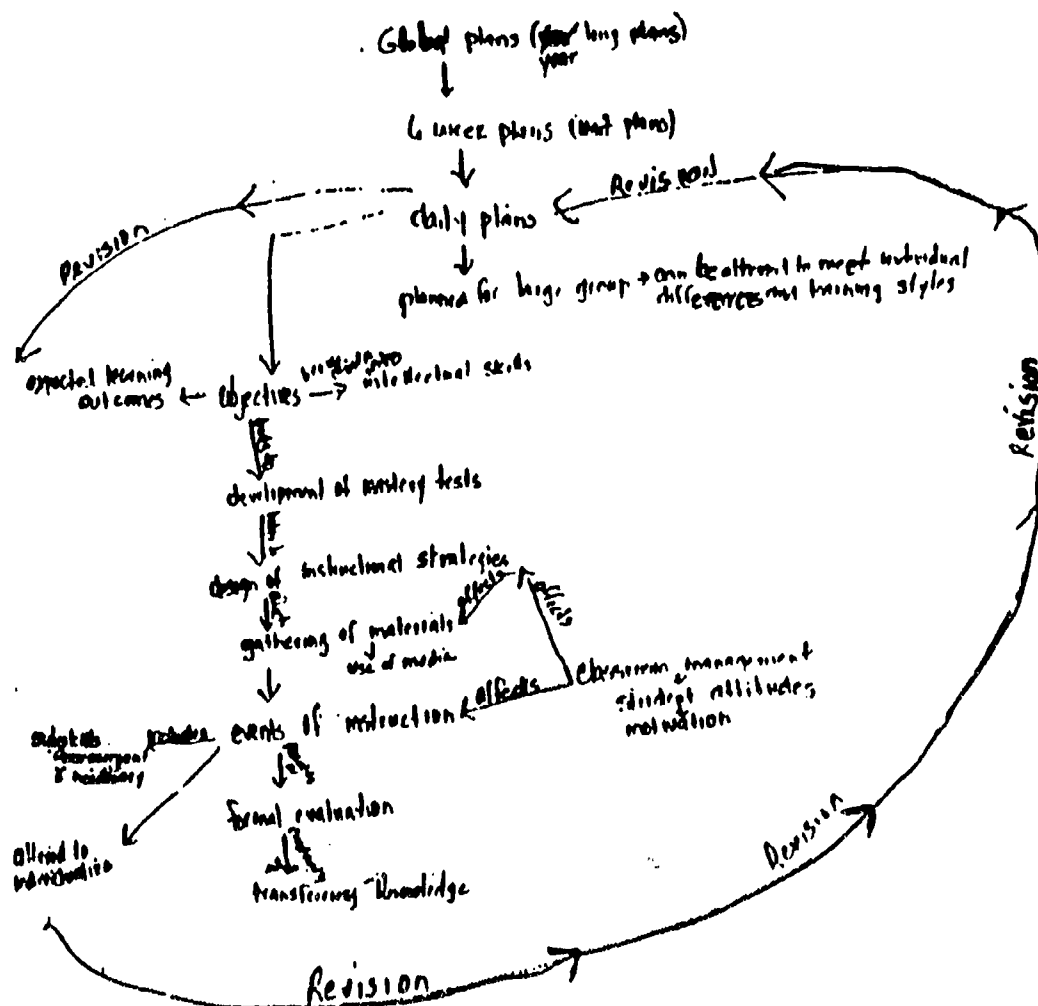 Global plans (year long plans)
6 week plans (unit plans)
Revision
daily plans
Revision
planned for large group → can be altered to meet individual
differences and training styles
expected learning
outcomes ← objectives → intellectual skills
Revision
development of mastery tests
design of instructional strategies
affects
affects
gathering of materials
use of media
Classroom management
student attitudes
motivation
affects
events of instruction
includes
formal evaluation
altered to
transferring knowledge
Revision
Revision